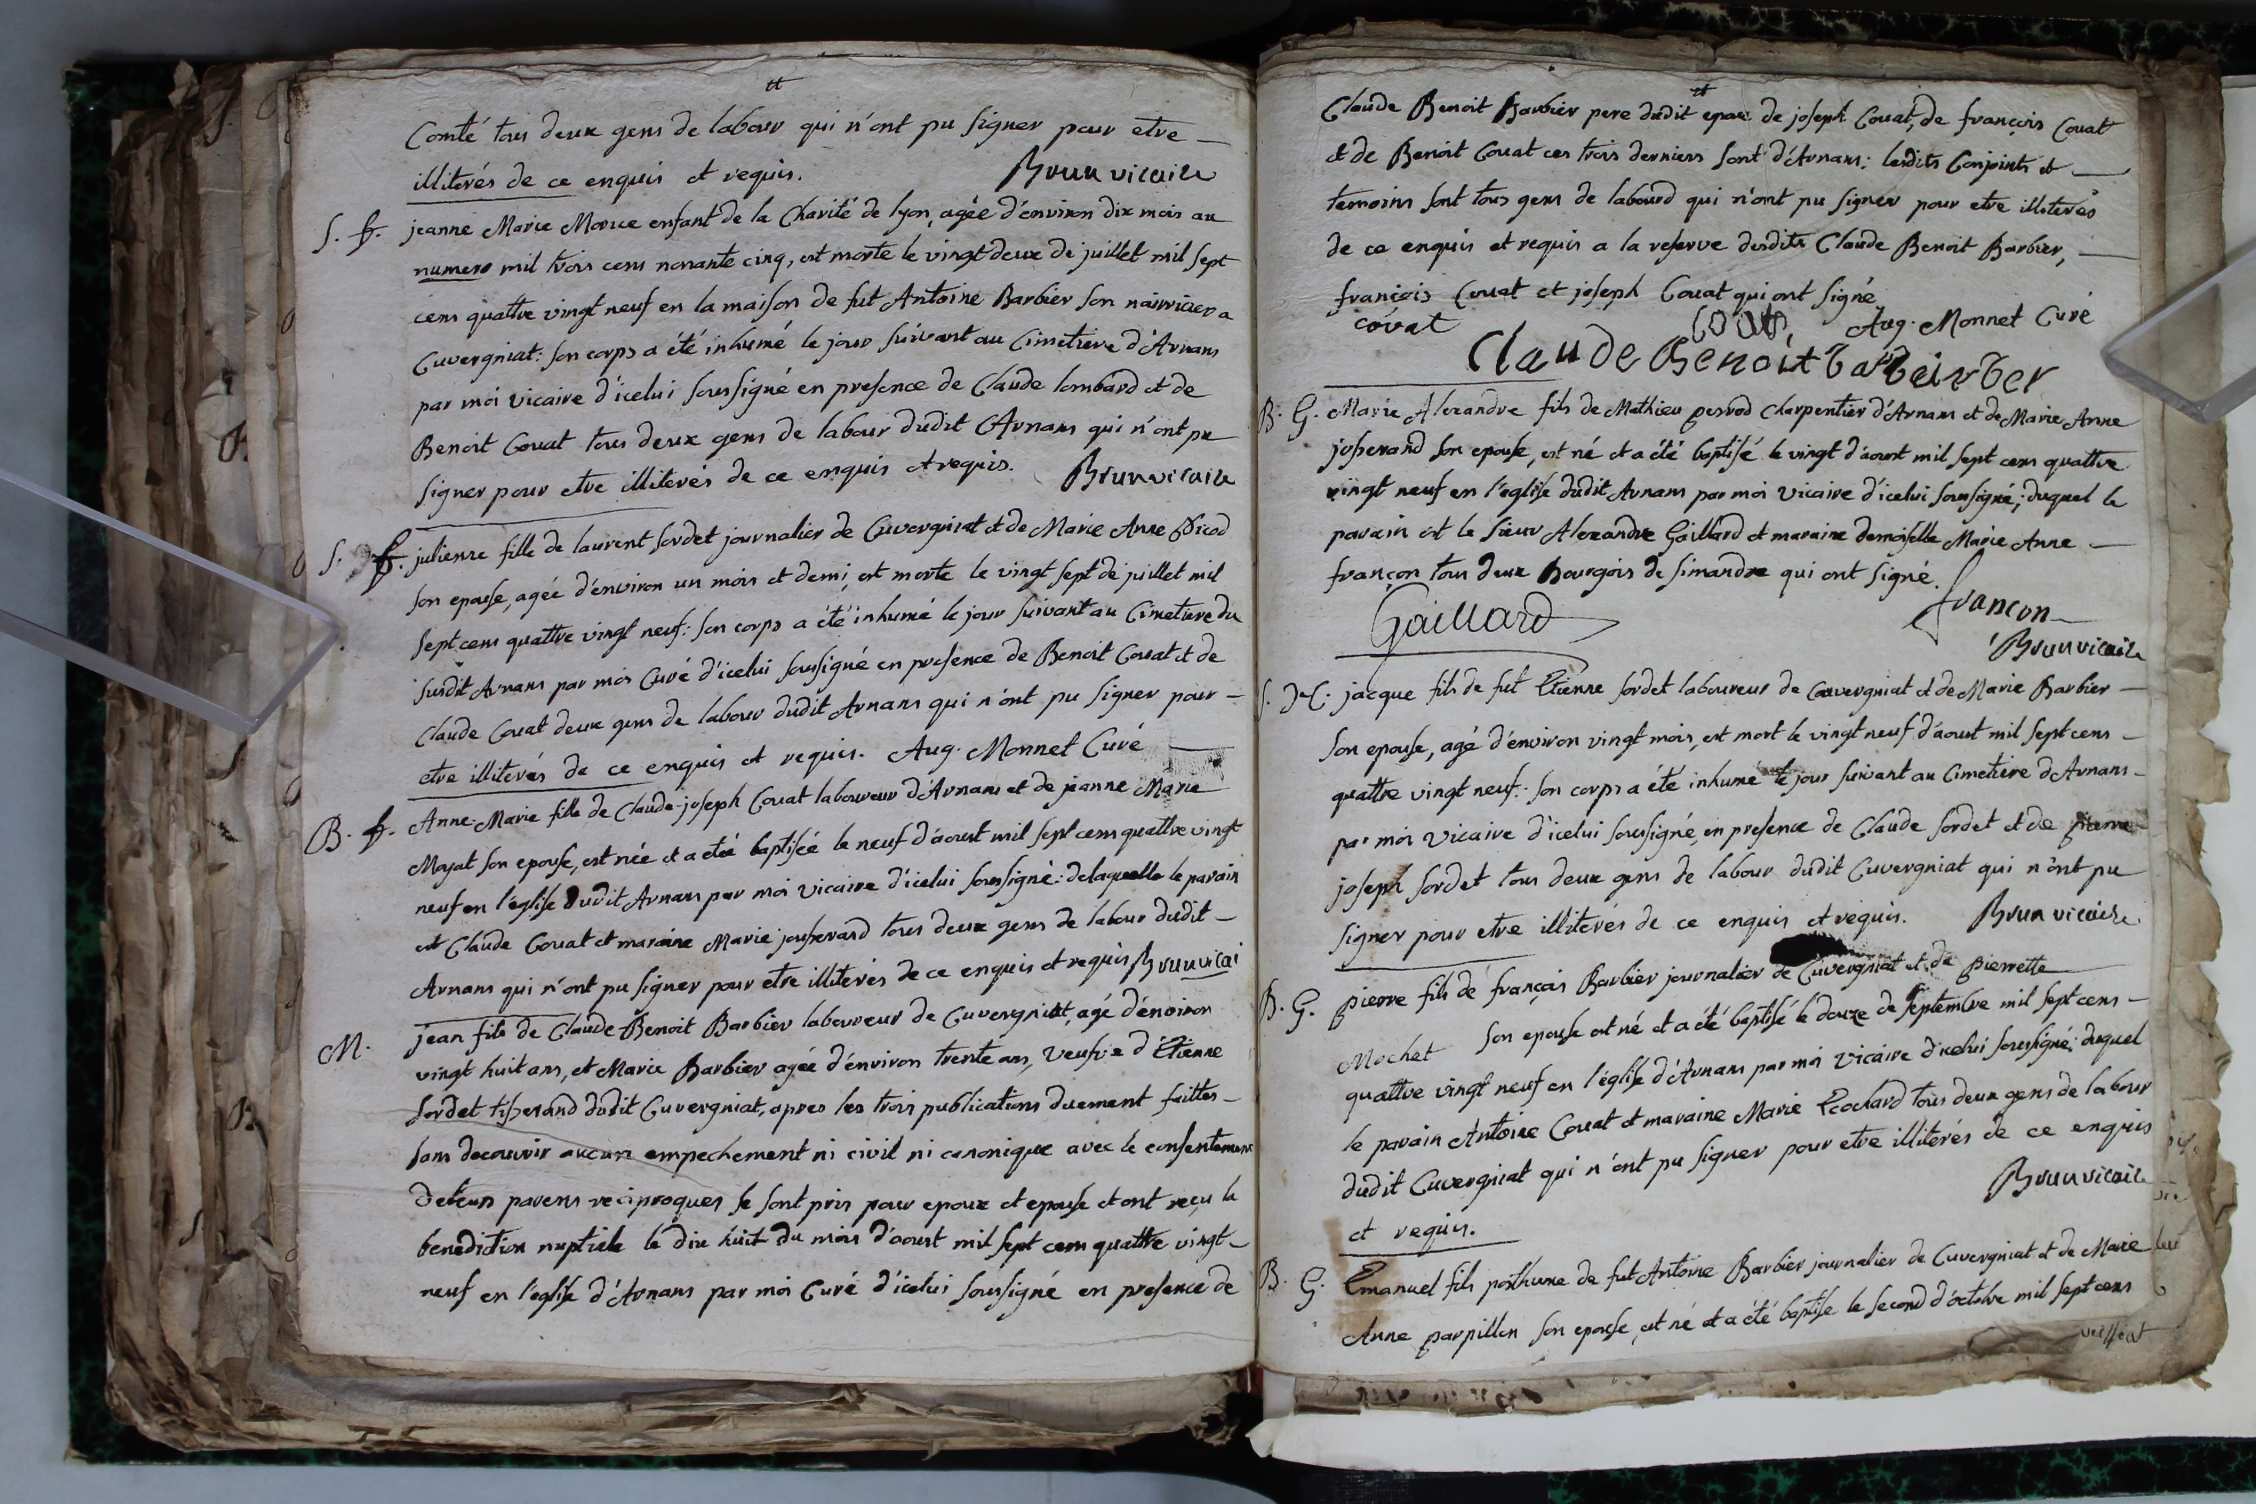 tt
Comté tous deux gens de labour qui n'ont pu signer pour etre
illiterés de ce enquis et requis. Brun vicaire
S. f. jeanne Marie Morice enfant de la Charité de lyon, agée d'environ dix mois au
numero mil trois cens nonante cinq, est morte le vingt deux de juillet mil sept
cens quattre vingt neuf en la maison de fut Antoine Barbier son nourricier a
Cuvergniat: son corps a été inhumé le jour suivant au Cimetiere d'Arnans
par moi vicaire d'icelui soussigné en presence de Claude lombard et de
Benoit Couat tous deux gens de labour dudit Arnans qui n'ont pu
signer pour etre illiterés de ce enquis et requis. Brun vicaire
S. f. julienne fille de laurent sordet journalier de Cuvergniat et de Marie Anne Picod
son epouse, agée d'environ un mois et demi, est morte le vingt sept de juillet mil
sept cens quattre vingt neuf: son corps a été inhumé le jour suivant au Cimetiere du
susdit Arnans par moi Curé d'icelui soussigné en presence de Benoit Couat et de
Claude Couat deux gens de labour dudit Arnans qui n'ont pu signer pour
etre illiterés de ce enquis et requis. Aug. Monnet Curé
B. f. Anne-Marie fille de Claude-joseph Couat laboureur d'Arnans et de jeanne Marie
Moyat son epouse, est née et a eté baptisée le neuf d'aoust mil sept cens quattre vingt
neuf en l'eglise dudit Arnans par moi vicaire d'icelui soussigné: delaquelle le parain
est Claude Couat et maraine Marie josserand tous deux gens de labour dudit
Arnans qui n'ont pu signer pour etre illiterés de ce enquis et requis Brun vicai
M. jean fils de Claude Benoit Barbier laboureur de Cuvergniat, agé d'environ
vingt huit ans, et Marie Barbier agée d'environ trente ans, veufve d'Etienne
sordet tisserand dudit Cuvergniat, apres les trois publications duement faittes
sans decouvrir aucun empechement ni civil ni canonique avec le consentement
de leurs parens reciproques se sont pris pour epoux et epouse et ont reçu la
benediction nuptiale le dix huit du mois d'aoust mil sept cens quattre vingt
neuf en l'eglise d'Arnans par moi Curé d'icelui soussigné en presence de
tt
Claude Benoit Barbier pere dudit epoux de joseph Couat, de françois Couat
et de Benoit Couat ces trois derniers sont d'Arnans: lesdits Conjoints et
temoins sont tous gens de labourd qui n'ont pu signer pour etre illiterés
de ce enquis et requis a la reserve desdits Claude Benoit Barbier,
françois Couat et joseph Couat qui ont signé
covat Couat, Aug. Monnet Curé
Claude Benoit barbier
B. G. Marie Alexandre fils de Mathieu perrod Charpentier d'Arnans et de Marie Anne
josserand son epouse, est né et a été baptisé le vingt d'aoust mil sept cens quattre
vingt neuf en l'eglise dudit Arnans par moi vicaire d'icelui soussigné; duquel le
parain est le sieur Alexandre Gaillard et maraine demoiselle Marie Anne
françon tous deux bourgois de simandre qui ont signé.
Gaillard francon
Brun vicaire
S. G. jacque fils de fut Etienne sordet laboureur de Cuvergniat et de Marie Barbier
son epouse, agé d'environ vingt mois, est mort le vingt neuf d'aoust mil sept cens
quattre vingt neuf: son corps a été inhumé le jour suivant au Cimetiere d'Arnans
par moi vicaire d'icelui soussigné, en presence de Claude sordet et de pierre
joseph sordet tous deux gens de labour dudit Cuvergniat qui n'ont pu
signer pour etre illiterés de ce enquis et requis. Brun vicaire
B. G. pierre fils de françois Barbier journalier de Cuvergniat et de pierrette
Mochet son epouse est né et a été baptisé le douze de septembre mil sept cens
quattre vingt neuf en l'eglise d'Arnans par moi vicaire d'icelui soussigné; duquel
le parain Antoine Couat et maraine Marie Ecochard tous deux gens de labour
dudit Cuvergniat qui n'ont pu signer pour etre illiterés de ce enquis
et requis. Brun vicaire
B. G. Emanuel fils posthume de fut Antoine Barbier journalier de Cuvergniat et de Marie
Anne parpillon son epouse, est né et a été baptisé le second d'octobre mil sept cens